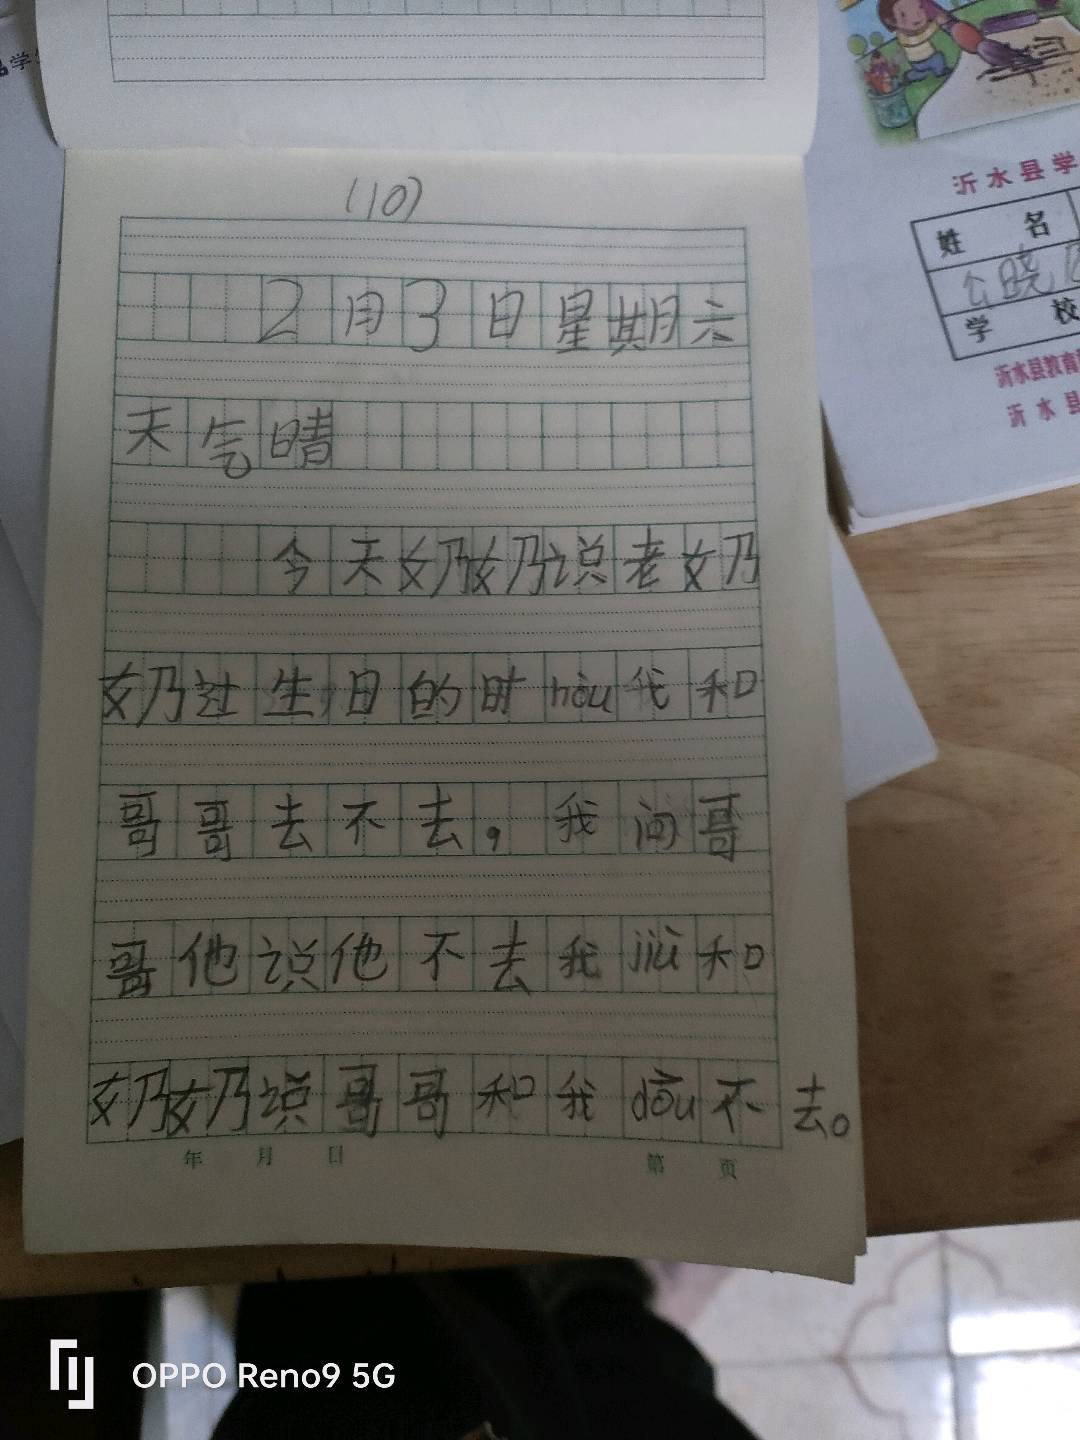 (10)
2月3日星期六
天气晴
今天奶奶说老奶
奶过生日的时hòu我和
哥哥去不去，我问哥
哥他说他不去我jiù和
奶奶说哥哥和我dōu不去。
年 月 日 第 页
沂水县学
姓 名
公晓
学 校
沂水县教育
沂水县
OPPO Reno9 5G